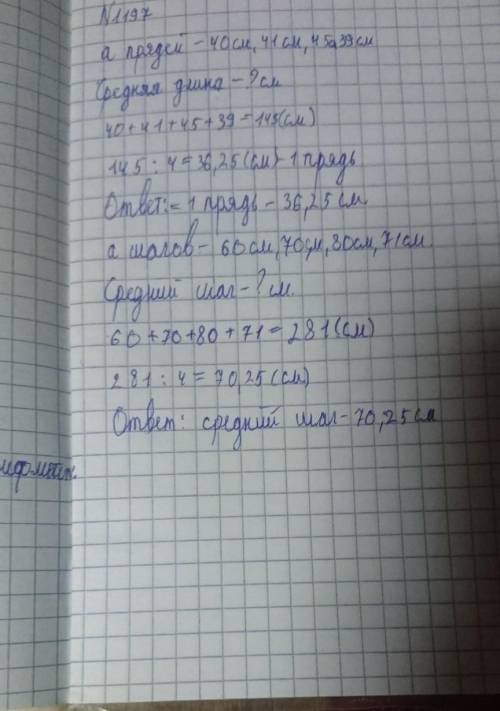 N1197
а прядей - 40 см, 41 см, 45, 39 см
Средняя длина - ? см
40 + 41 + 45 + 39 = 145(см)
145 : 4 = 36,25 (см) - 1 прядь
Ответ: = 1 прядь - 36,25 см.
а шагов - 60 см, 70 см, 80 см, 71 см
Средний шаг - ? см.
60 + 70 + 80 + 71 = 281 (см)
281 : 4 = 70,25 (см)
Ответ: средний шаг - 70,25 см